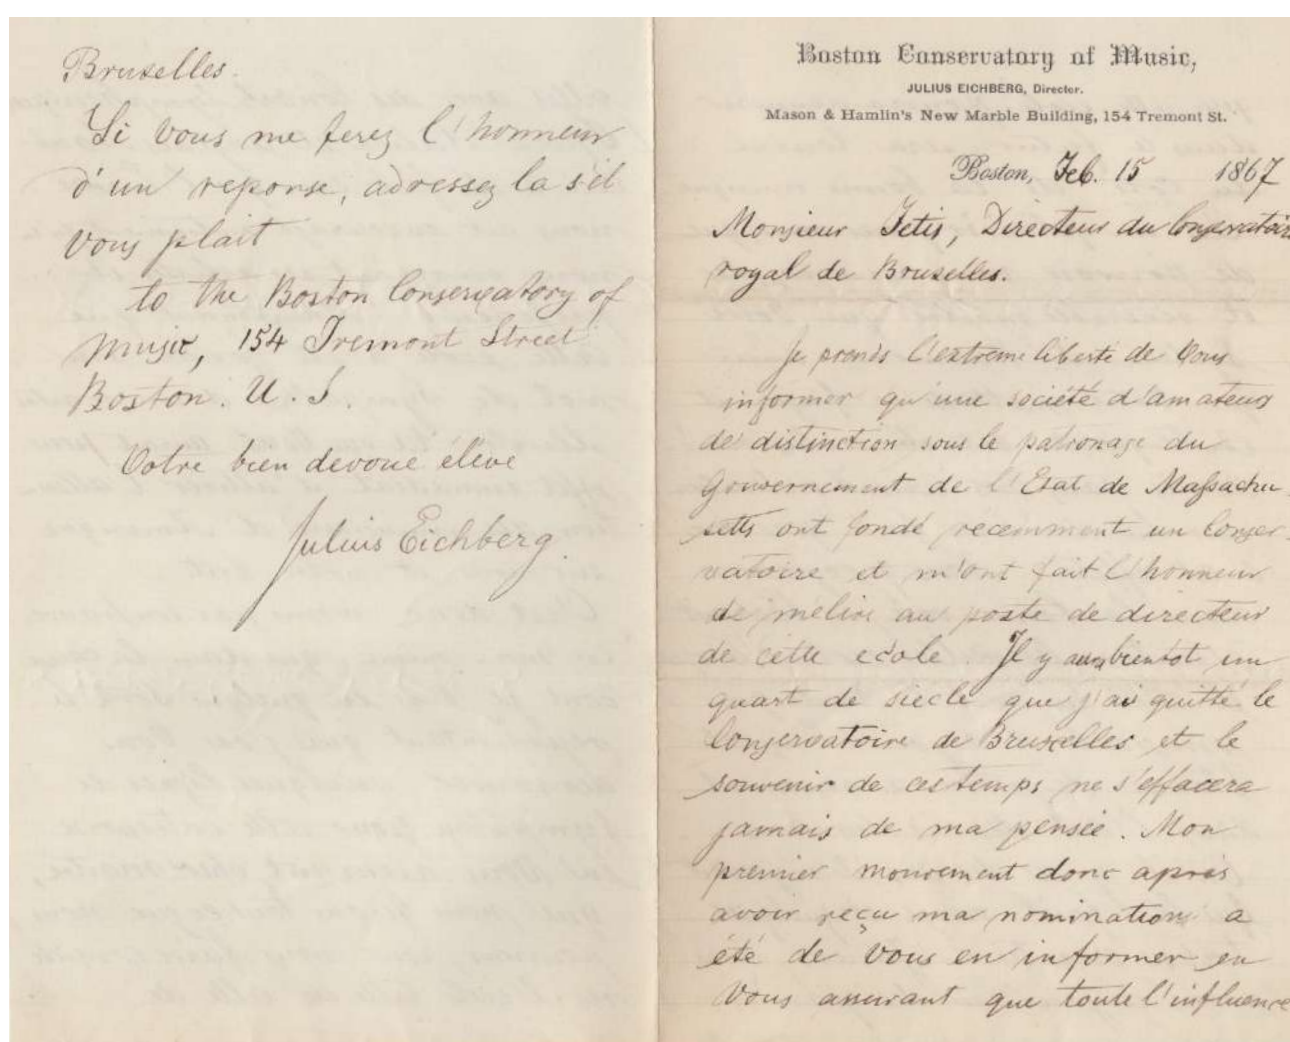 Bruxelles.
Si vous me ferez l'honneur
d'un reponse, adressez la s'il
vous plait
to the Boston Conservatory of
Music, 154 Tremont Street
Boston. U. S.
Votre bien devoué élève
Julius Eichberg.
Boston Conservatory of Music,
JULIUS EICHBERG, Director.
Mason & Hamlin's New Marble Building, 154 Tremont St.
Boston, Feb. 15 1867
Monsieur Fetis, Directeur du Conservatoire
royal de Bruxelles.
Je prends l'extreme liberté de vous
informer qu'une société d'amateurs
de distinction sous le patronage du
Gouvernement de l'Etat de Massachu
setts ont fondé récemment un Conser
vatoire et m'ont fait l'honneur
de m'elire au poste de directeur
de cette ecole. Il y aura bientot un
quart de siecle que j'ai quitté le
Conservatoire de Bruxelles et le
souvenir de ces temps ne s'effacera
jamais de ma pensée. Mon
premier mouvement donc apres
avoir reçu ma nomination a
été de vous en informer en
vous assurant que toute l'influence